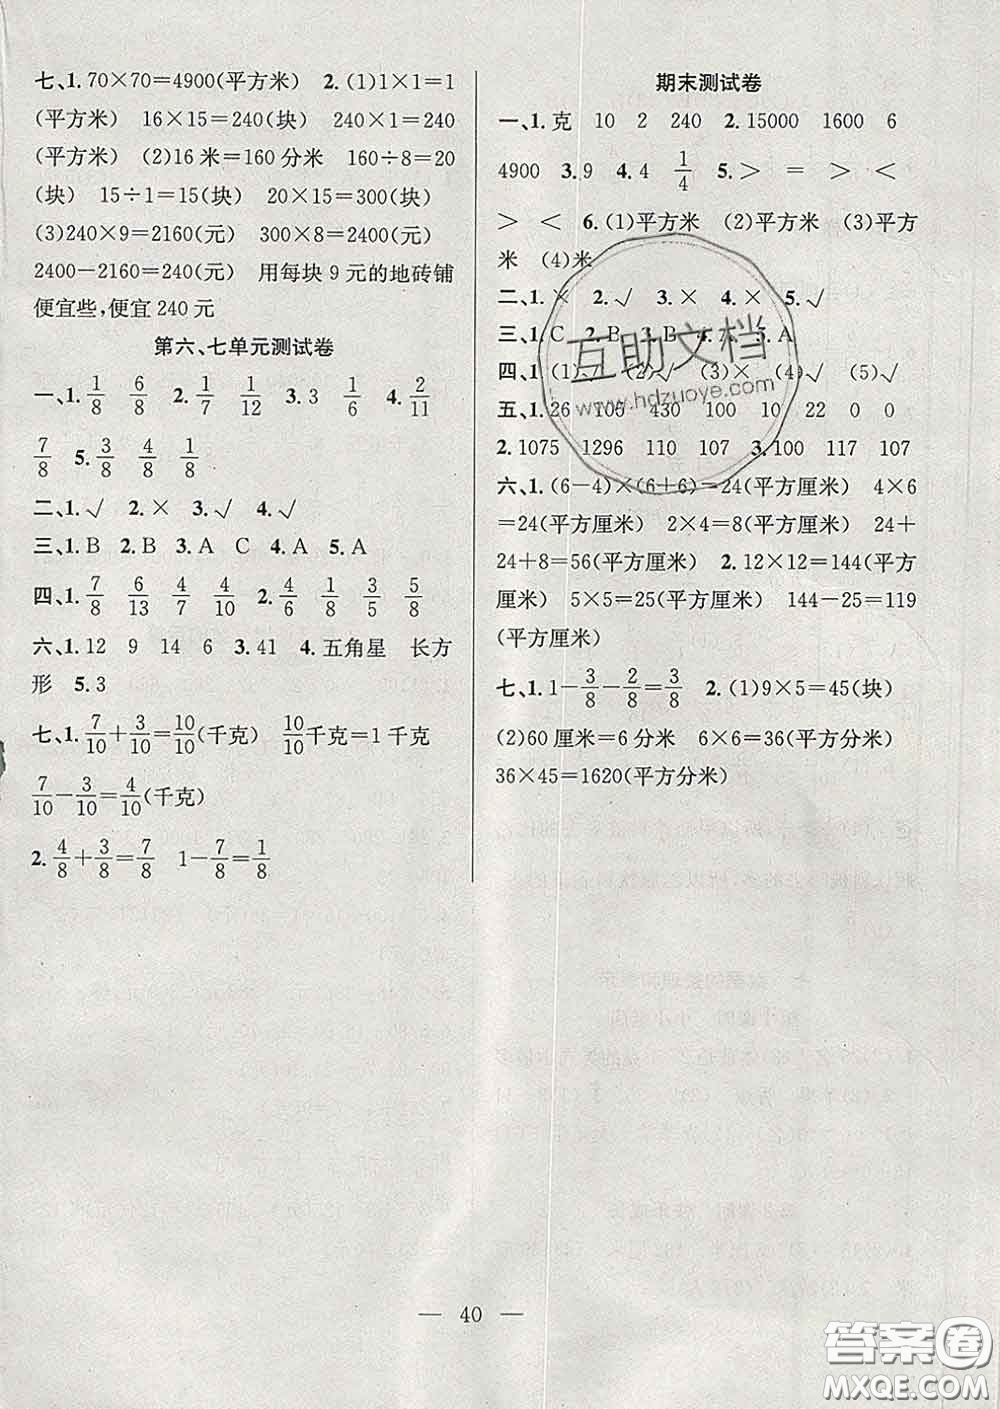 七、1. 70×70=4900(平方米) 2. (1)1×1=1
(平方米) 16×15=240(块) 240×1=240
(平方米) (2)16 米=160 分米 160÷8=20
(块) 15÷1=15(块) 20×15=300(块)
(3)240×9=2160(元) 300×8=2400(元)
2400-2160=240(元) 用每块 9 元的地砖铺
便宜些,便宜 240 元
第六、七单元测试卷
一、1. 1/8 6/8 2. 1/7 1/12 3. 3 1/6 4. 2/11
7/8 5. 3/8 4/8 1/8
二、1. √ 2. × 3. √ 4. √
三、1. B 2. B 3. A C 4. A 5. A
四、1. 7/8 6/13 4/7 4/10 2. 4/6 1/8 3/5 5/8
六、1. 12 9 14 6 3. 41 4. 五角星 长方
形 5. 3
七、1. 7/10+3/10=10/10(千克) 10/10千克=1千克
7/10-3/10=4/10(千克)
2. 4/8+3/8=7/8 1-7/8=1/8
期末测试卷
一、1. 克 10 2 240 2. 15000 1600 6
4900 3. 9 4. 4 1/4 5. > = > <
> < 6. (1)平方米 (2)平方米 (3)平方
米 (4)米
二、1. × 2. √ 3. × 4. × 5. √
三、1. C 2. B 3. B 4. A 5. A
四、1. (1)√ (2)√ (3)× (4)√ (5)√
五、1. 26 105 430 100 10 22 0 0
2. 1075 1296 110 107 3. 100 117 107
六、1. (6-4)×(6+6)=24(平方厘米) 4×6
=24(平方厘米) 2×4=8(平方厘米) 24+
24+8=56(平方厘米) 2. 12×12=144(平方
厘米) 5×5=25(平方厘米) 144-25=119
(平方厘米)
七、1. 1-3/8-2/8=3/8 2. (1)9×5=45(块)
(2)60 厘米=6 分米 6×6=36(平方分米)
36×45=1620(平方分米)
互助文档
www.hdzuoye.com
— 40 —
答案圈
MXQE.COM